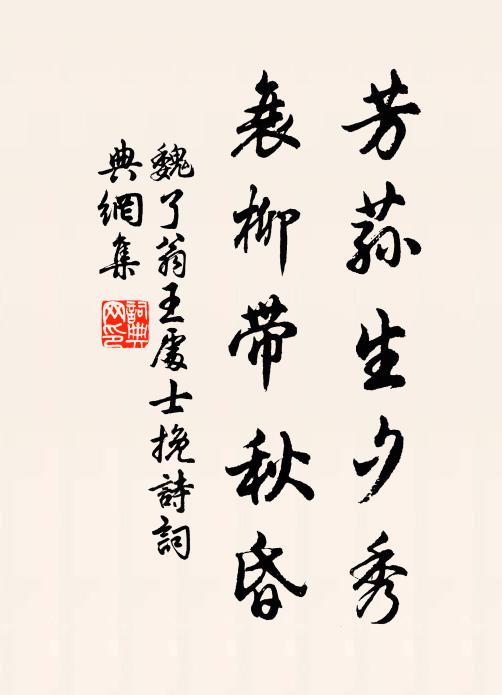 芳荪生夕秀
衰柳带秋昏
魏了翁王处士挽詩詞
典網集
詞典
网印